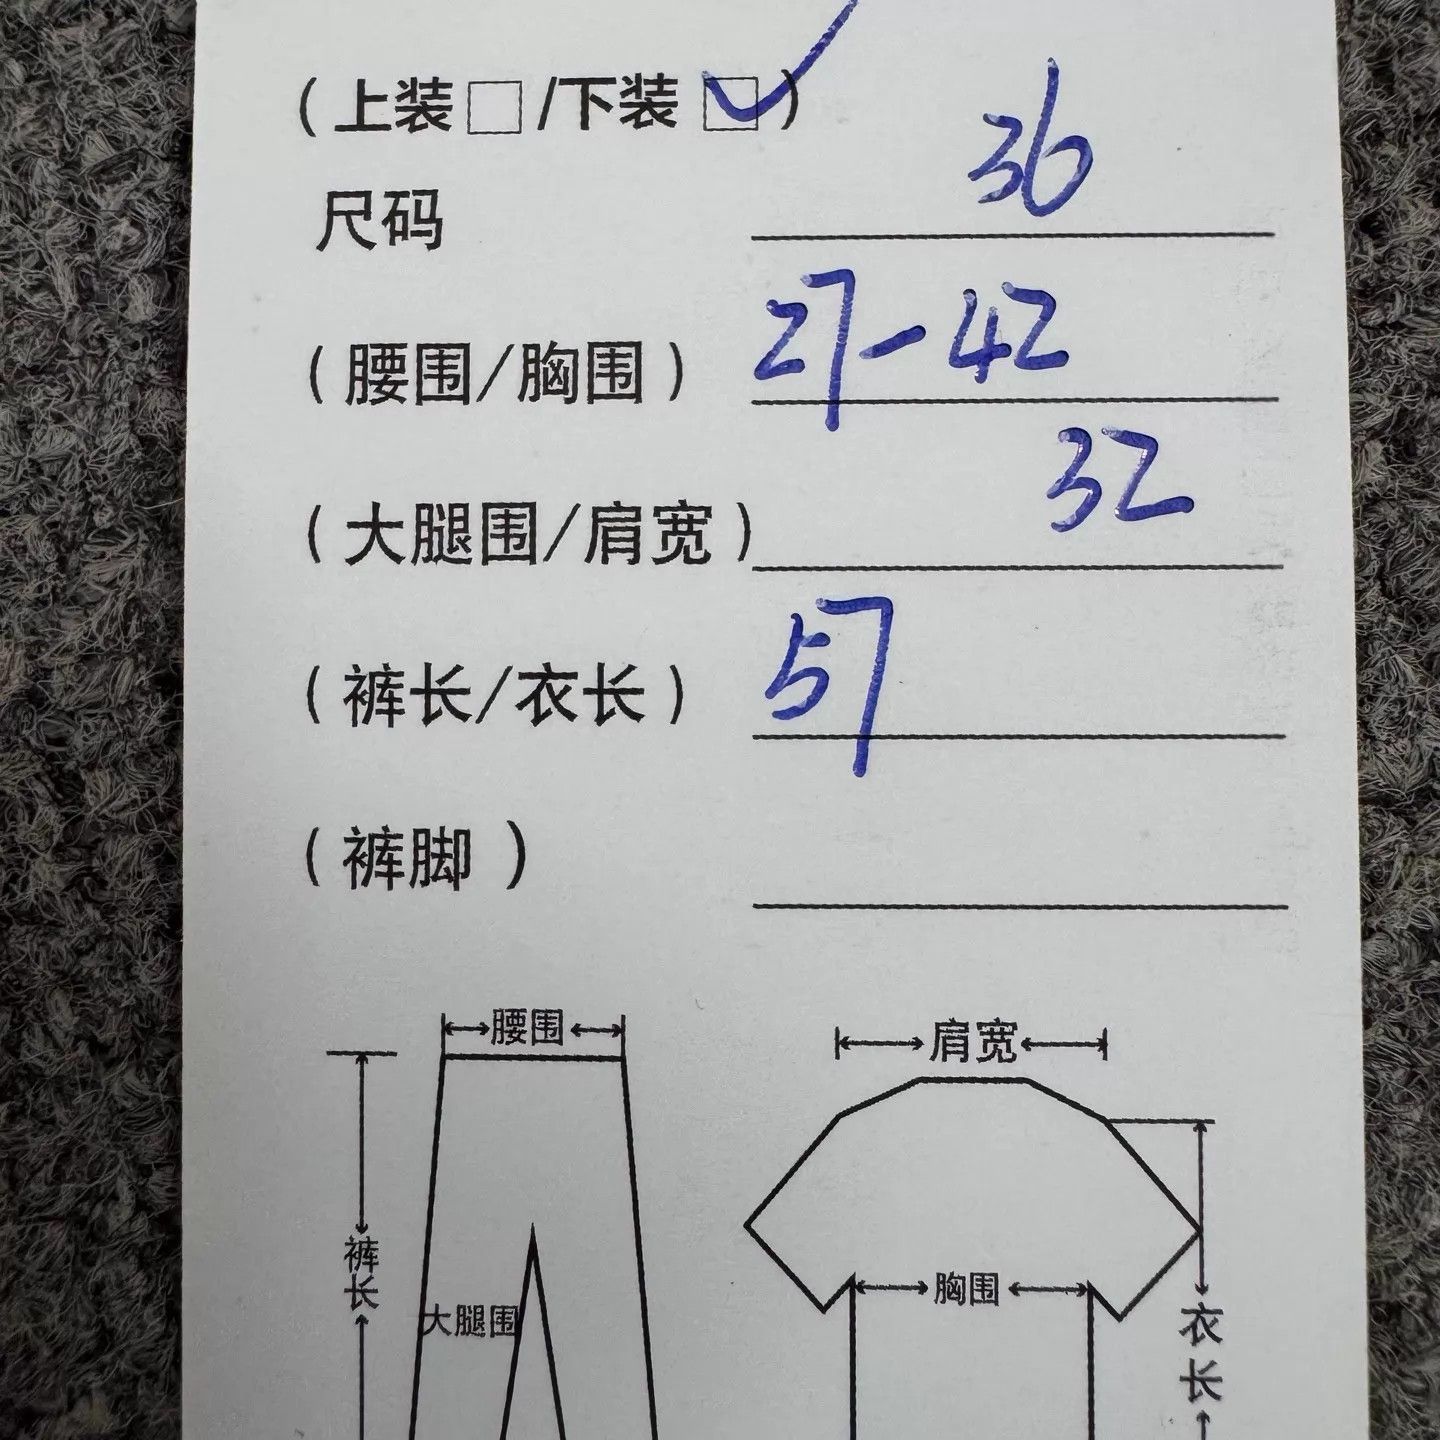 (上装□/下装☑)
尺码 36
(腰围/胸围) 27-42
(大腿围/肩宽) 32
(裤长/衣长) 57
(裤脚)
腰围
肩宽
裤长
大腿围
胸围
衣长